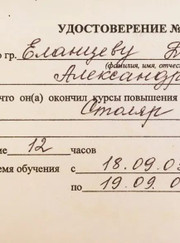 УДОСТОВЕРЕНИЕ №
гр. Еланцеву
(фамилия, имя, отчес
Александр
что он(а) окончил курсы повышения
Столяр
12 часов
емя обучения с 18.09.0
по 19.09.0